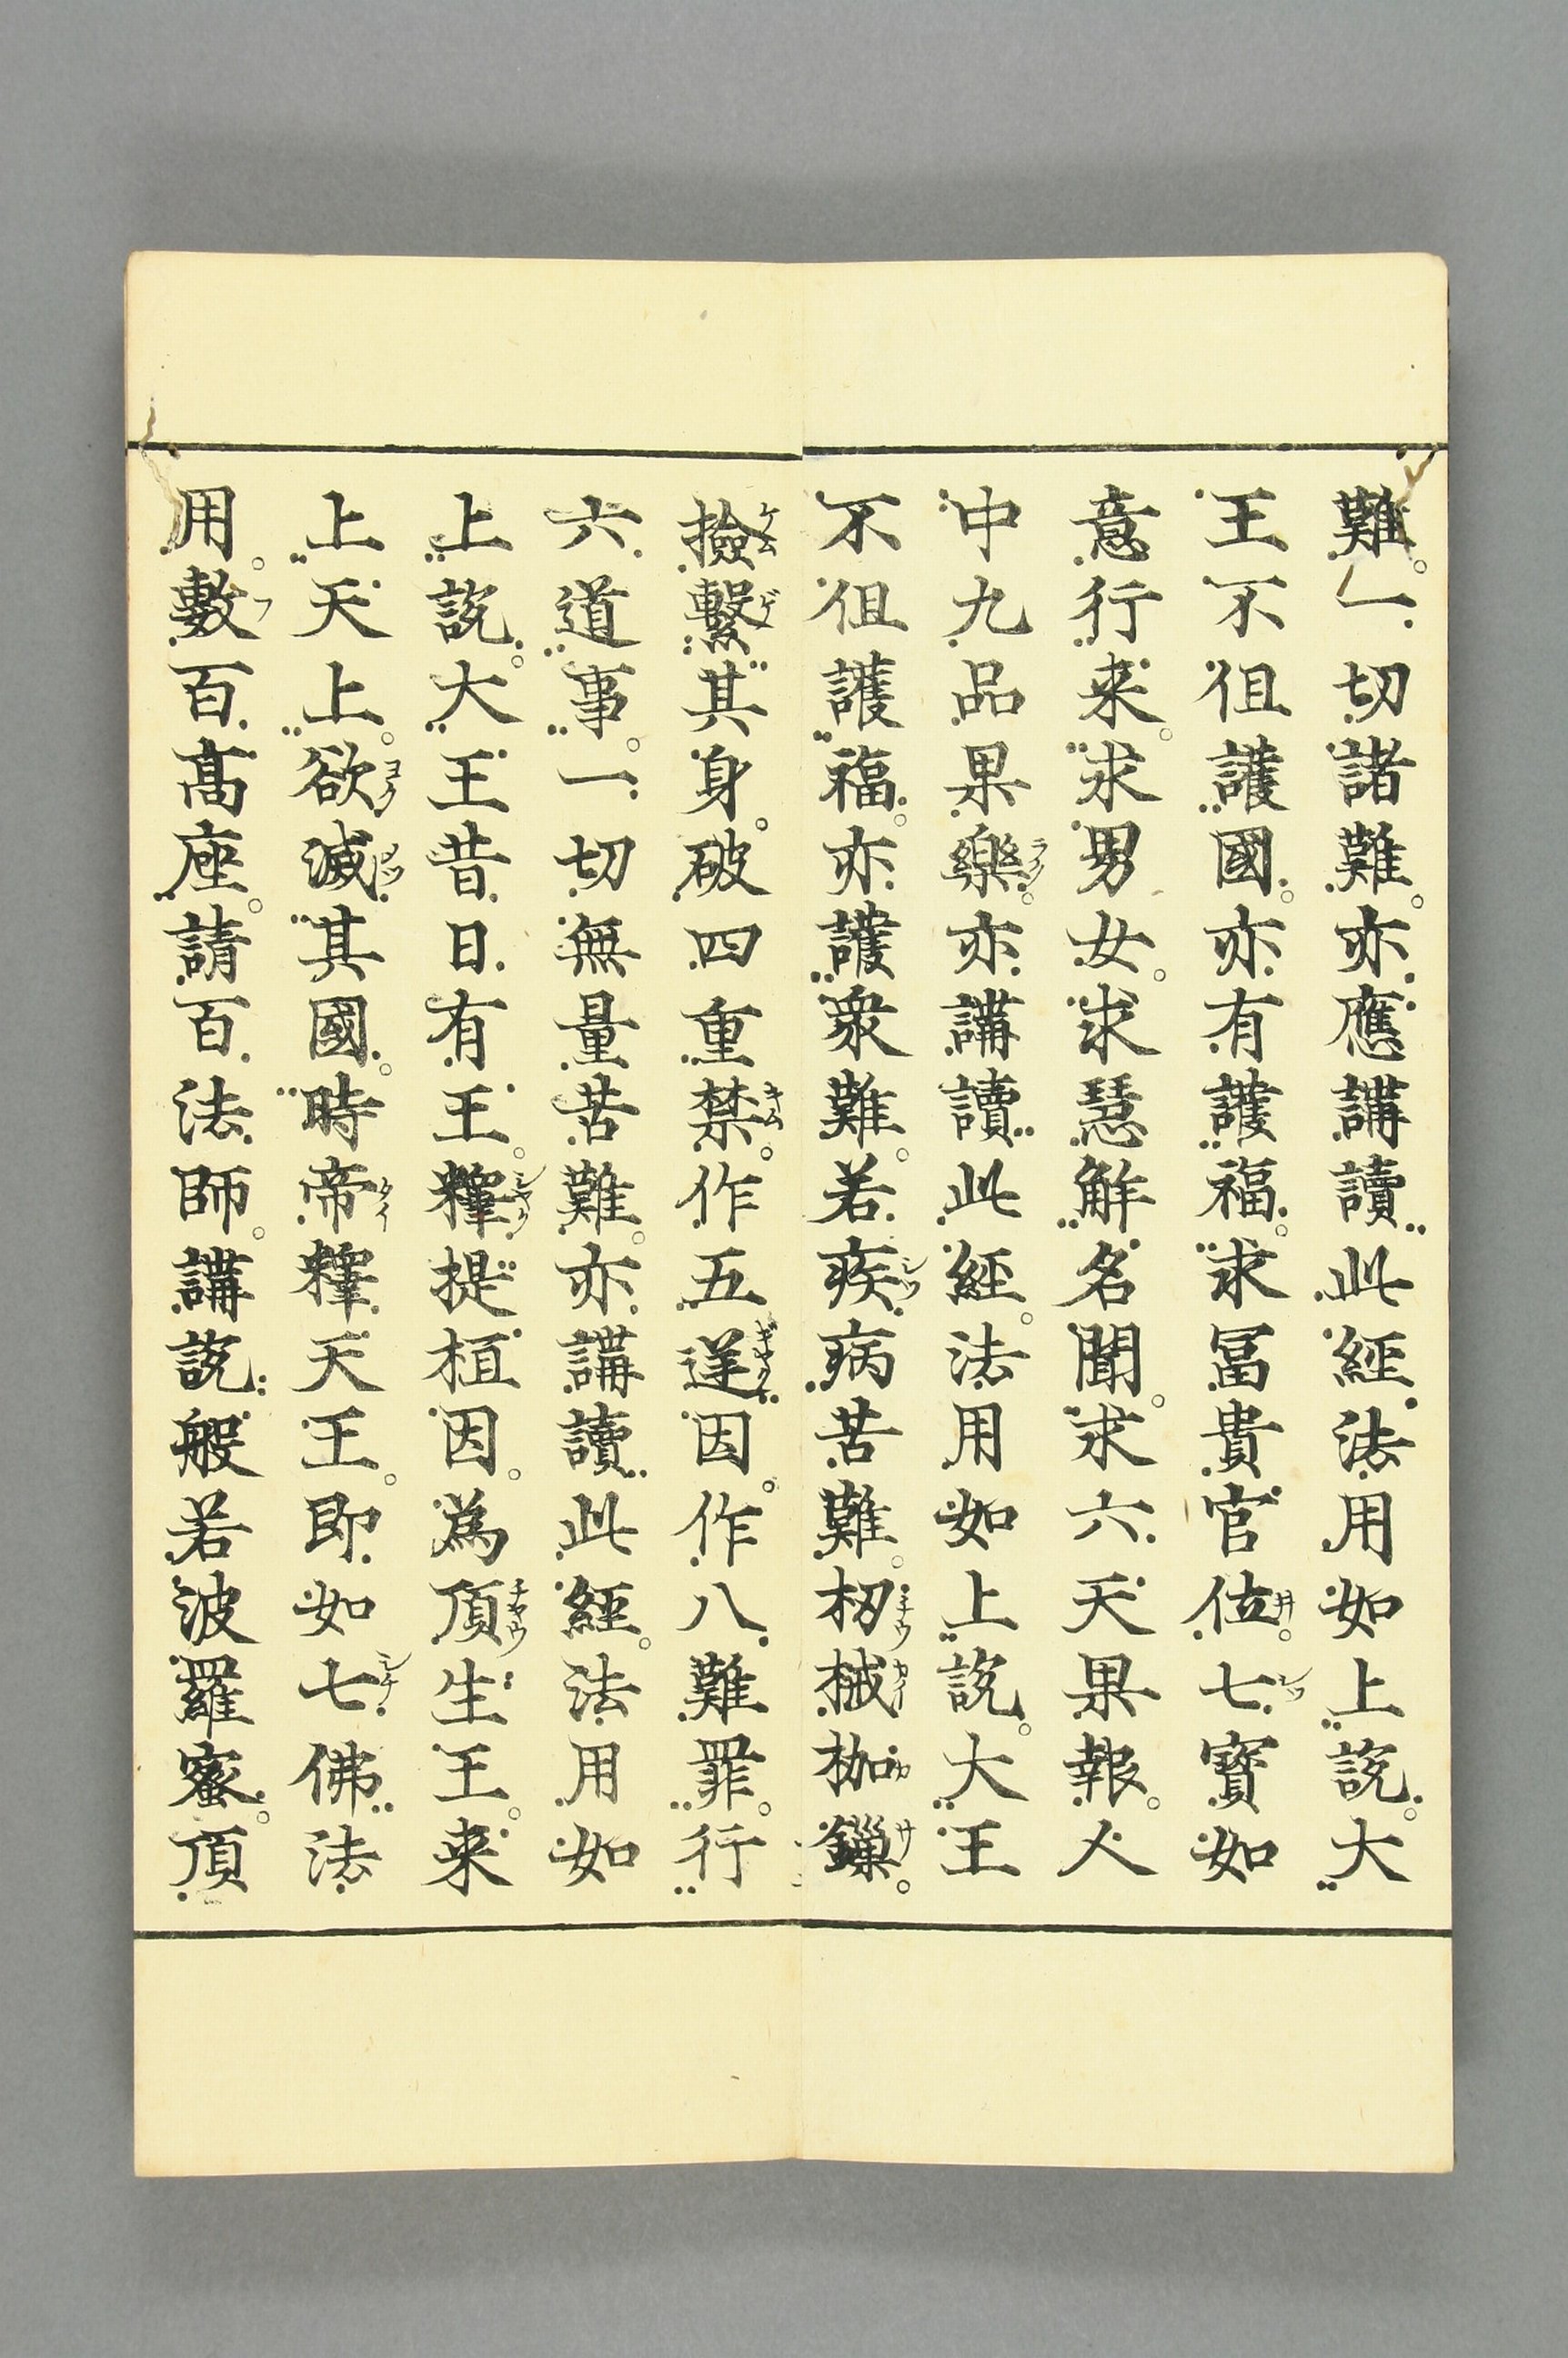 難。一切諸難。亦應講讀此經法用如上説。大
王不徂護國。亦有護福。求冨貴官位。七寳如
意行来。求男女。求慧觧名聞。求六天果報。人
中九品果樂。亦講讀此經。法用如上説。大王
不徂護福。亦護衆難。若疾病苦難。杻械枷鏁。
撿繫其身。破四重禁。作五逆因。作八難罪。行
六道事。一切無量苦難。亦講讀此經。法用如
上説。大王昔日有王。釋提桓因。為頂生王。来
上天上。欲滅其國。時帝釋天王。即如七佛法
用。敷百髙座。請百法師。講説般若波羅蜜。頂